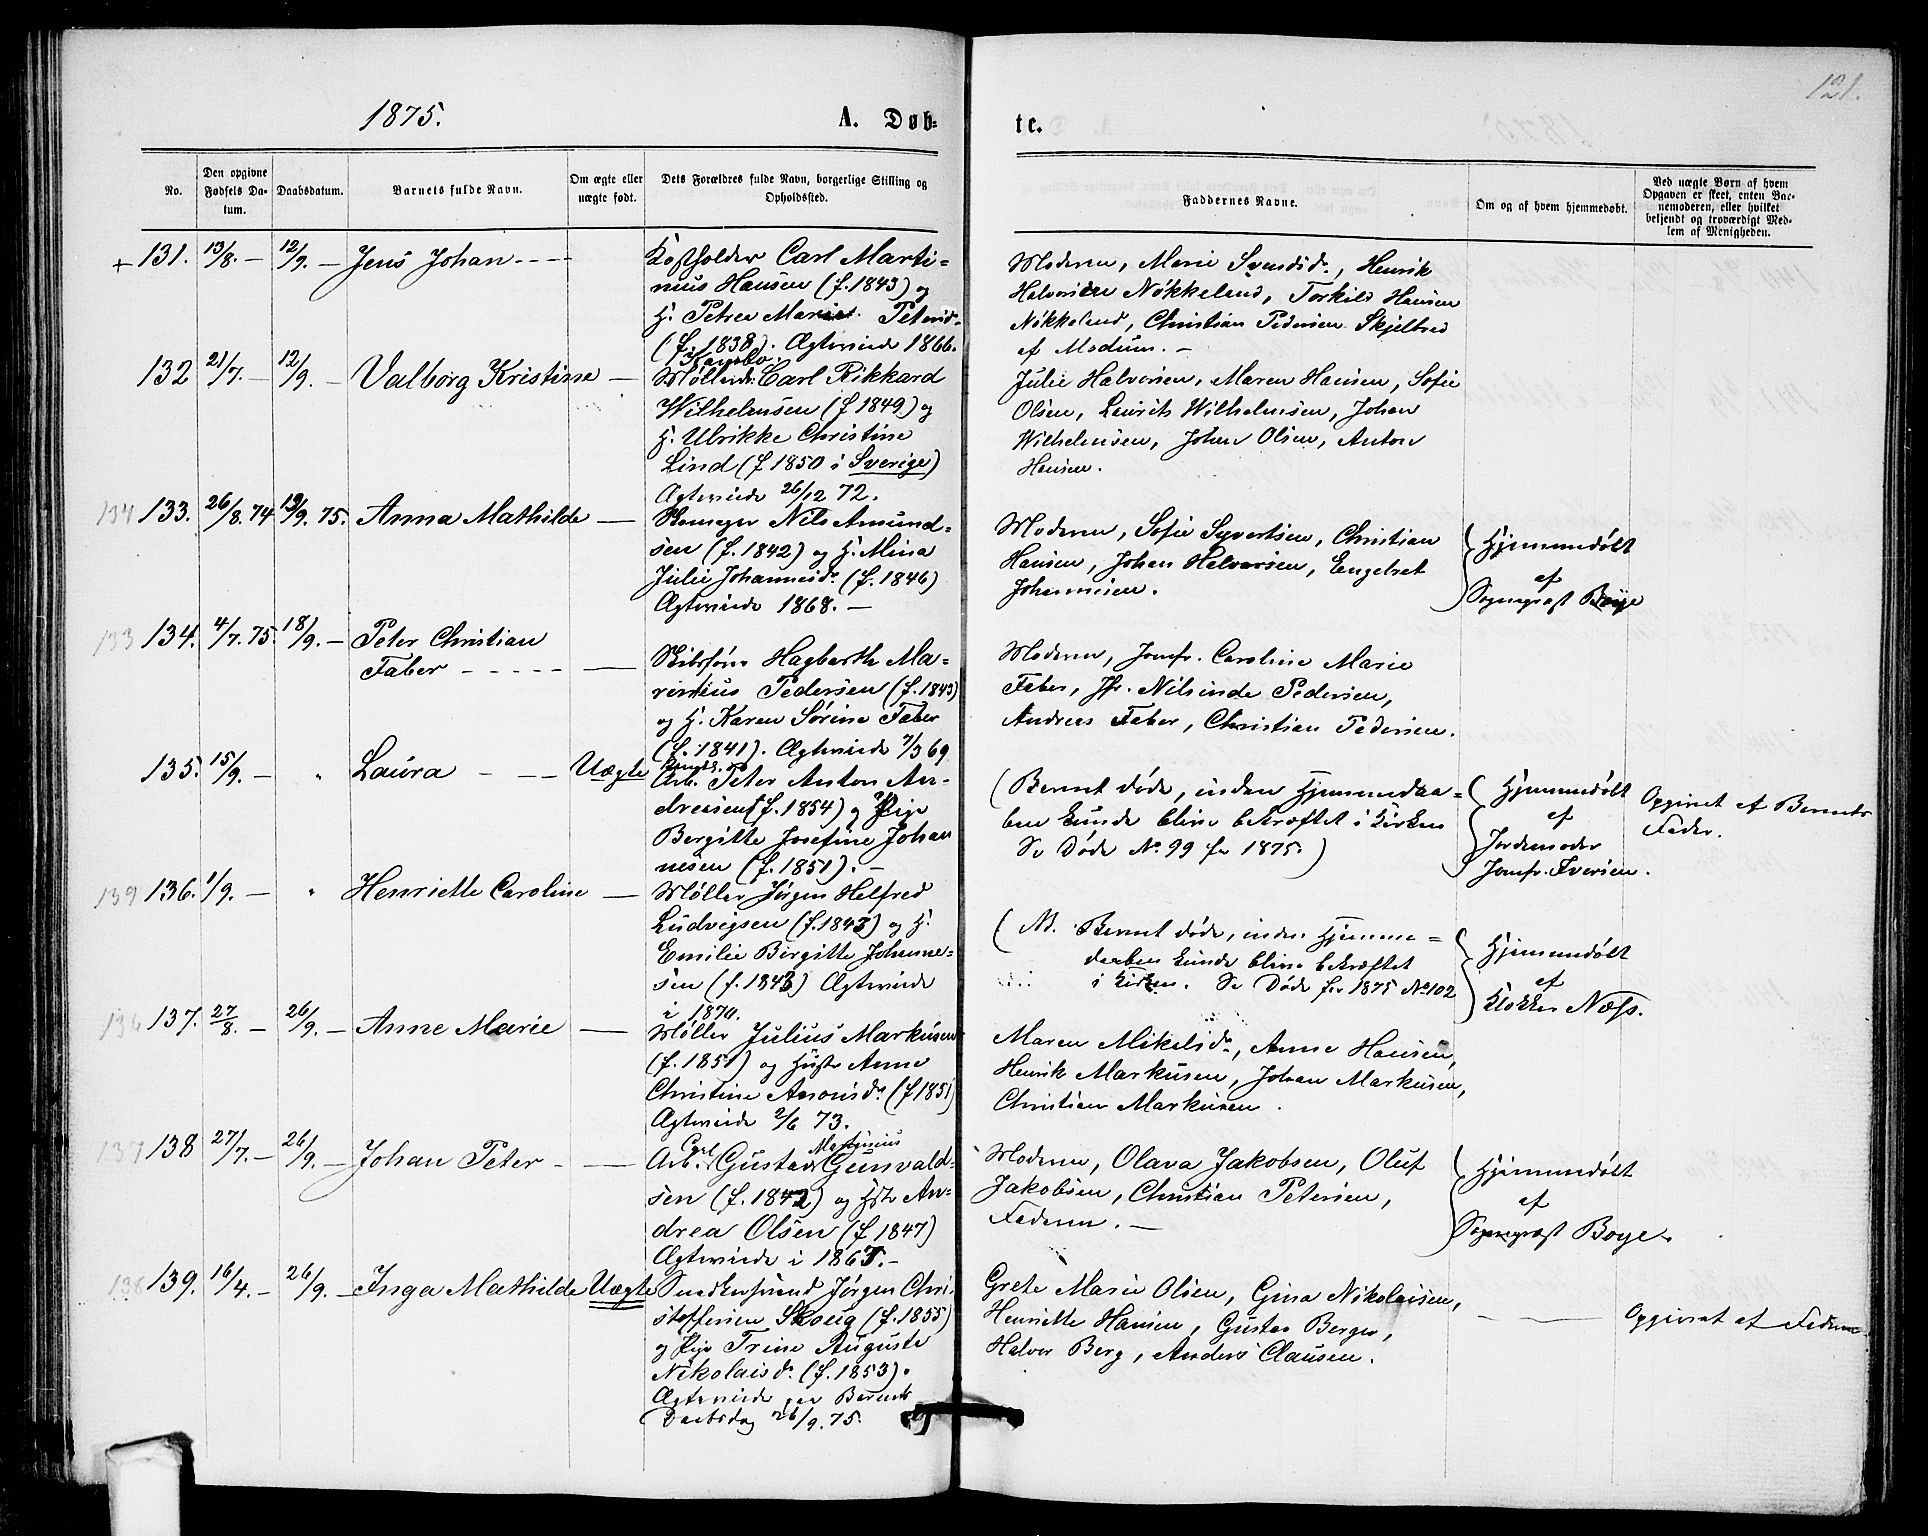 1875.
A. Døb-
te.
121.
No.
Den opgivne Fødsels Da-tum.
Daabsdatum.
Barnets fulde Navn.
Om ægte eller uægte født.
Dets Forældres fulde Navn, borgerlige Stilling og Opholdssted.
Faddernes Navne.
Om og af hvem hjemmedøbt.
Ved uægte Børn af hvem Opgaven er skeet, enten Bar-nemoderen, eller hvilket betjendt og troværdigt Med-lem af Menigheden.
+ 131. 13/8. — 12/9. — Jens Johan - - - -
Kostholder Carl Marti-
nius Hansen (f. 1843) og
H. Petrea Marie Petersd.
(f. 1838). Ægteviede 1866.
Moderen, Marie Svendsd., Henrik
Halvorsen Nøkkeland, Torkild Hansen
Nøkkeland, Christian Pedersen Skjelbred
af Modum. —
132 21/7. — 12/9. — Valborg Kristine —
Kambo.
Møllerdr. Carl Rikkard
Wilhelmsen (f 1849) og
H. Ulrikke Christine
Lind (f 1850 i Sverige)
Ægteviede 26/12 72.
Julie Halvorsen, Maren Hansen, Sofie
Olsen, Laurits Wilhelmsen, Johan
Wilhelmsen, Johan Olsen, Anton
Hansen.
134 133. 26/8. 74 19/9. 75. Anna Mathilde —
Skomager Nils Amund-
sen (f. 1842) og H. Mina
Julie Johannesd. (f. 1846)
Ægteviede 1868. —
Moderen, Sofie Syvertsen, Christian
Hansen, Johan Halvorsen, Engebret
Johannesen.
Hjemmedøbt
af
Sognepræst Boye
133 134. 4/7. 75. 18/9. — Peter Christian
Faber - - - - - —
Skibsfører Hagbarth Ma-
rentius Pedersen (f. 1843)
og H. Karen Sørine Faber
(f. 1841). Ægteviede 7/3 69
Moderen, Jomfr. Caroline Marie
Faber, Jfr. Nilsinde Pedersen,
Andreas Faber, Christian Pedersen.
135. 15/9. — " Laura - - — Uægte
Arb. Peter Anton An-
dreasen (f. 1854) og Pige
Bergitte Josefine Johan
nesen (f. 1851). —
(Barnet døde, inden Hjemmedaa-
ben kunde blive bekræftet i Kirken
Se Døde No. 99 for 1875.)
Hjemmedøbt
af
Jordemoder
Jomfr. Iversen.
Opgivet af Barnets
Fader.
139 136. 1/9. — " Henriette Caroline —
Møller Jørgen Helfred
Ludvigsen (f. 1843) og H.
Emilie Birgitte Johanne-
sen (f. 1843) Ægteviede
i 1870.
(NB. Barnet døde, inden Hjemme-
daaben kunde blive bekræftet
i Kirken. Se Døde for 1875 No 102
Hjemmedøbt
af
Klokker Næss.
136 137. 27/8. — 26/9. — Anne Marie —
Møller Julius Markusen
(f. 1851) og Hustr Anne
Christine Aronsd. (f 1851)
Ægteviede 2/6 73.
Maren Mikelsd., Anne Hansen,
Henrik Markusen, Johan Markusen,
Christian Markusen.
137 138 27/7. — 26/9. — Johan Peter - —
Carl Martinius
Arb. Gustav Gunvald-
sen (f. 1842) og Hstr An-
drea Olsen (f 1847)
Ægteviede i 1867. —
Moderen, Olava Jakobsen, Oluf
Jakobsen, Christian Petersen,
Faderen. —
Hjemmedøbt
af
Sognepræst Boye.
138 139. 16/4. — 26/9. — Inga Mathilde Uægte
Snedkersvend Jørgen Chri-
stoffersen Skoug (f. 1855)
og Pige Trine Auguste
Nikolaisd. (f. 1853).
Ægteviede paa Barnets
Daabsdag 26/9. 75.
Grete Marie Olsen, Gina Nikolaisen,
Henriette Hansen, Gustav Berger,
Halvor Berg, Anders Clausen.
Opgivet af Faderen.